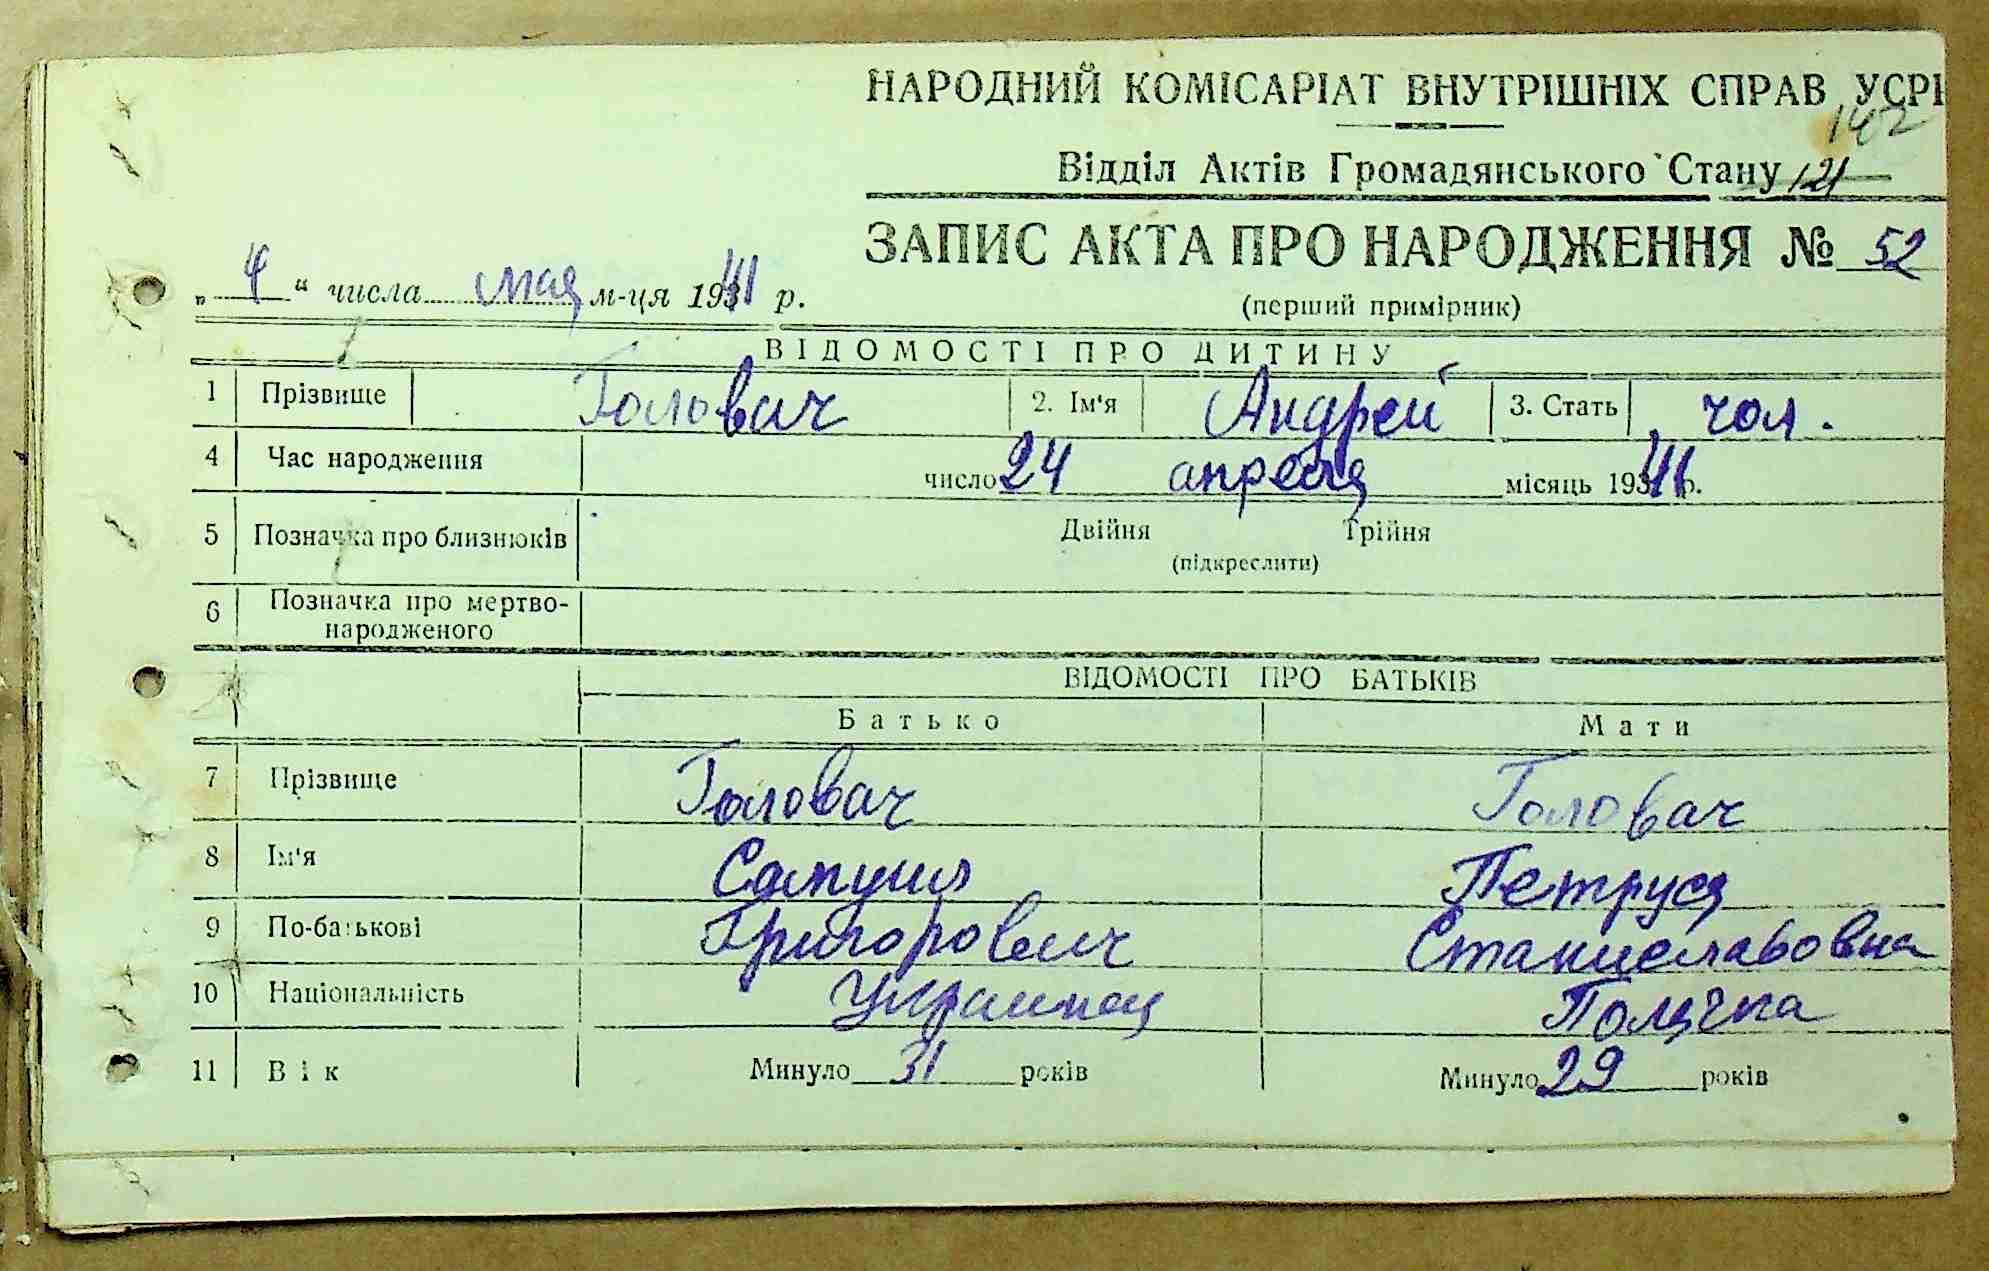 НАРОДНИЙ КОМІСАРІАТ ВНУТРІШНІХ СПРАВ УСРР
142
Відділ Актів Громадянського Стану 121
ЗАПИС АКТА ПРО НАРОДЖЕННЯ № 52
„ 4 “ числа мая м-ця 1941 р.
(перший примірник)
ВІДОМОСТІ ПРО ДИТИНУ
1 Прізвище Головач 2. Ім'я Андрей 3. Стать чол.
4 Час народження число 24 апреля місяць 1941 р.
5 Позначка про близнюків Двійня Трійня
(підкреслити)
6 Позначка про мертво-
народженого
ВІДОМОСТІ ПРО БАТЬКІВ
Батько Мати
7 Прізвище Головач Головач
8 Ім'я Самуил Петруся
9 По-батькові Григорович Станиславовна
10 Національність Украинец Полячка
11 Вік Минуло 31 років Минуло 29 років